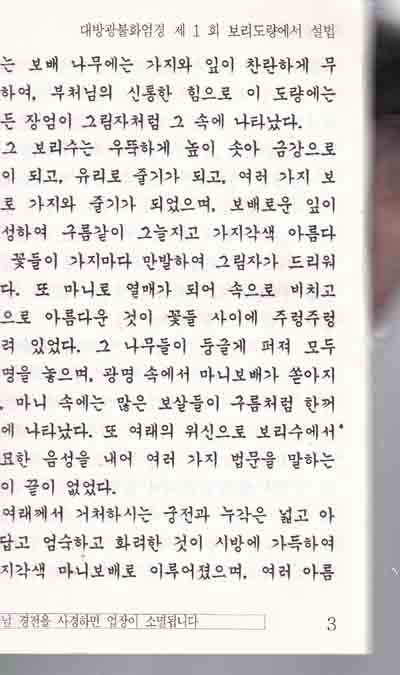 대방광불화엄경 제 1 회 보리도량에서 설법
는 보배 나무에는 가지와 잎이 찬란하게 무
하여, 부처님의 신통한 힘으로 이 도량에는
든 장엄이 그림자처럼 그 속에 나타났다.
그 보리수는 우뚝하게 높이 솟아 금강으로
이 되고, 유리로 줄기가 되고, 여러 가지 보
로 가지와 줄기가 되었으며, 보배로운 잎이
성하여 구름같이 그늘지고 가지각색 아름다
꽃들이 가지마다 만발하여 그림자가 드리워
다. 또 마니로 열매가 되어 속으로 비치고
으로 아름다운 것이 꽃들 사이에 주렁주렁
려 있었다. 그 나무들이 둥글게 퍼져 모두
명을 놓으며, 광명 속에서 마니보배가 쏟아지
, 마니 속에는 많은 보살들이 구름처럼 한꺼
에 나타났다. 또 여래의 위신으로 보리수에서
묘한 음성을 내어 여러 가지 법문을 말하는
이 끝이 없었다.
여래께서 거처하시는 궁전과 누각은 넓고 아
답고 엄숙하고 화려한 것이 시방에 가득하여
지각색 마니보배로 이루어졌으며, 여러 아름
님 경전을 사경하면 업장이 소멸됩니다
3